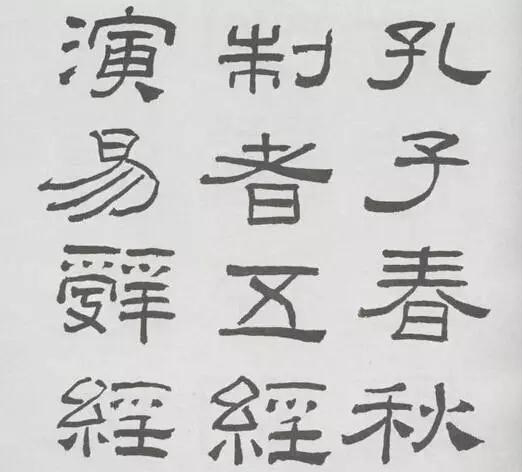 孔子春秋
制者五經
演易辤經